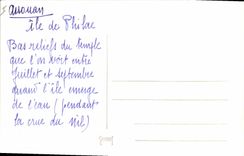 Assouan
Île de Philae
Bas reliefs du temple
que l'on voit entre
Juillet et septembre
quand l'île émerge
de l'eau (pendant
la crue du Nil)